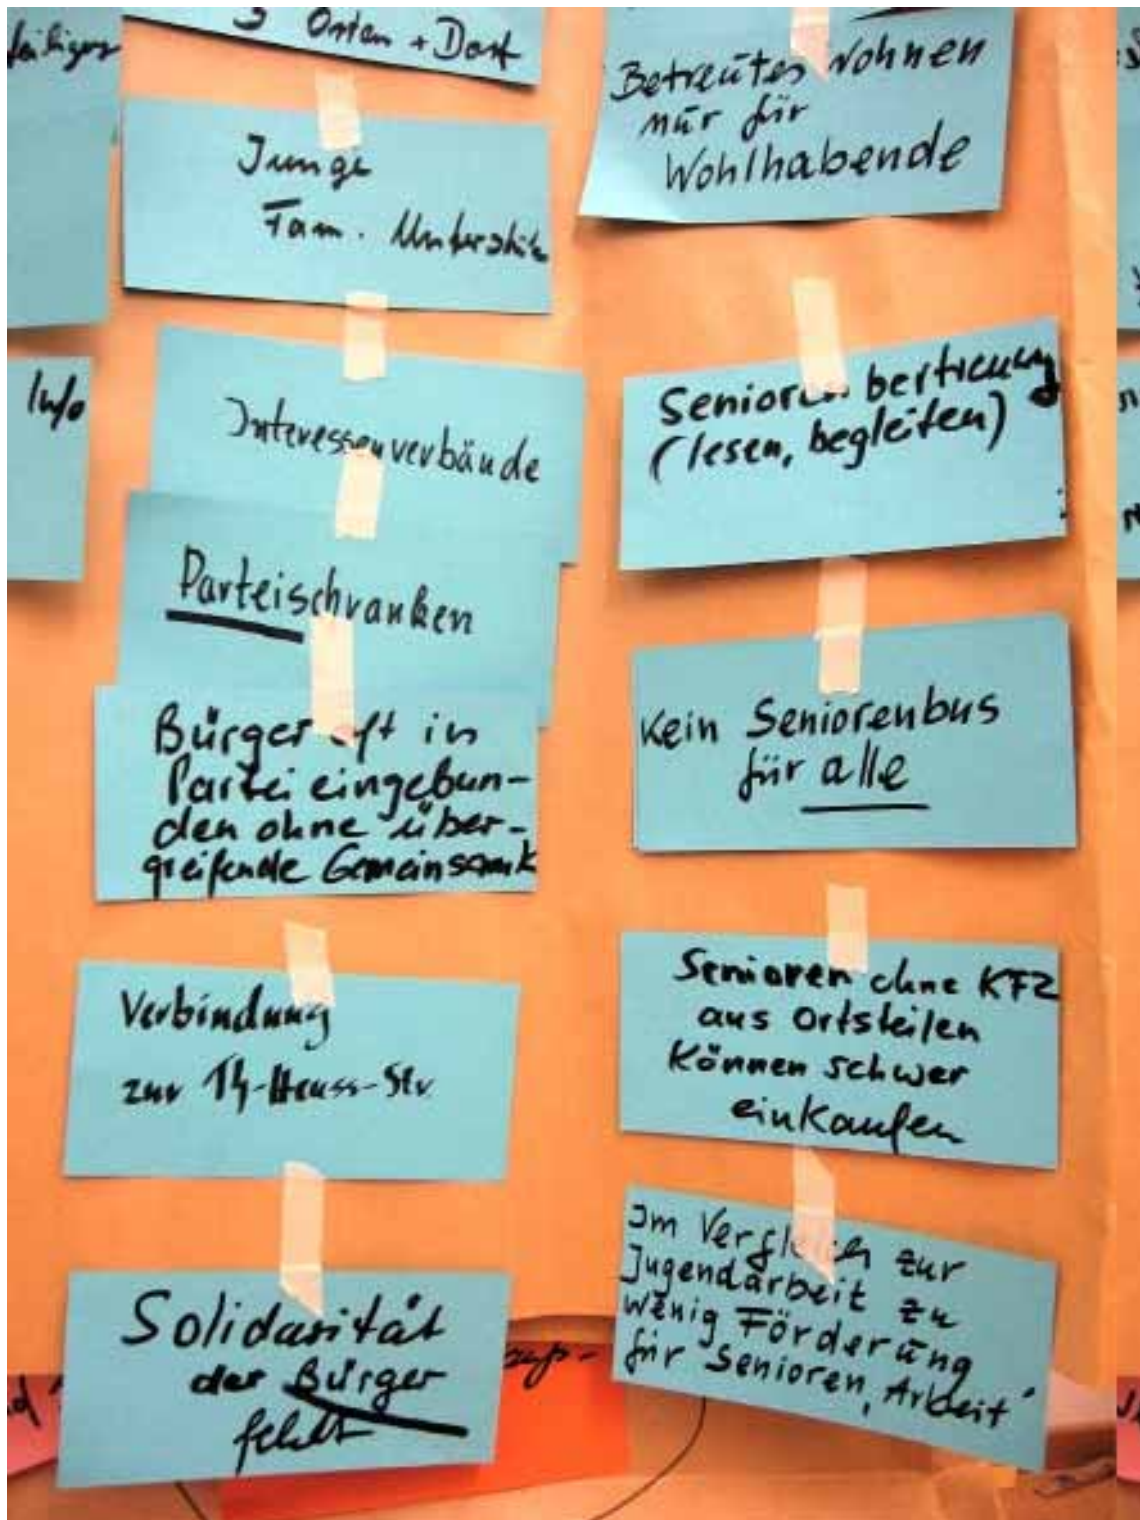 3 Orten + Dorf
Junge
Fam. Unterstütz
Interessenverbände
Parteischranken
Bürger oft in
Partei eingebun-
den ohne über-
greifende Gemeinsamk
Verbindung
zur Th-Heuss-Str
Solidarität
der Bürger
fehlt
Info
Betreutes Wohnen
nur für
Wohlhabende
Senioren bertreuung
(lesen, begleiten)
Kein Seniorenbus
für alle
Senioren ohne KFZ
aus Ortsteilen
können schwer
einkaufen
Im Vergleich zur
Jugendarbeit zu
wenig Förderung
für Senioren „Arbeit“